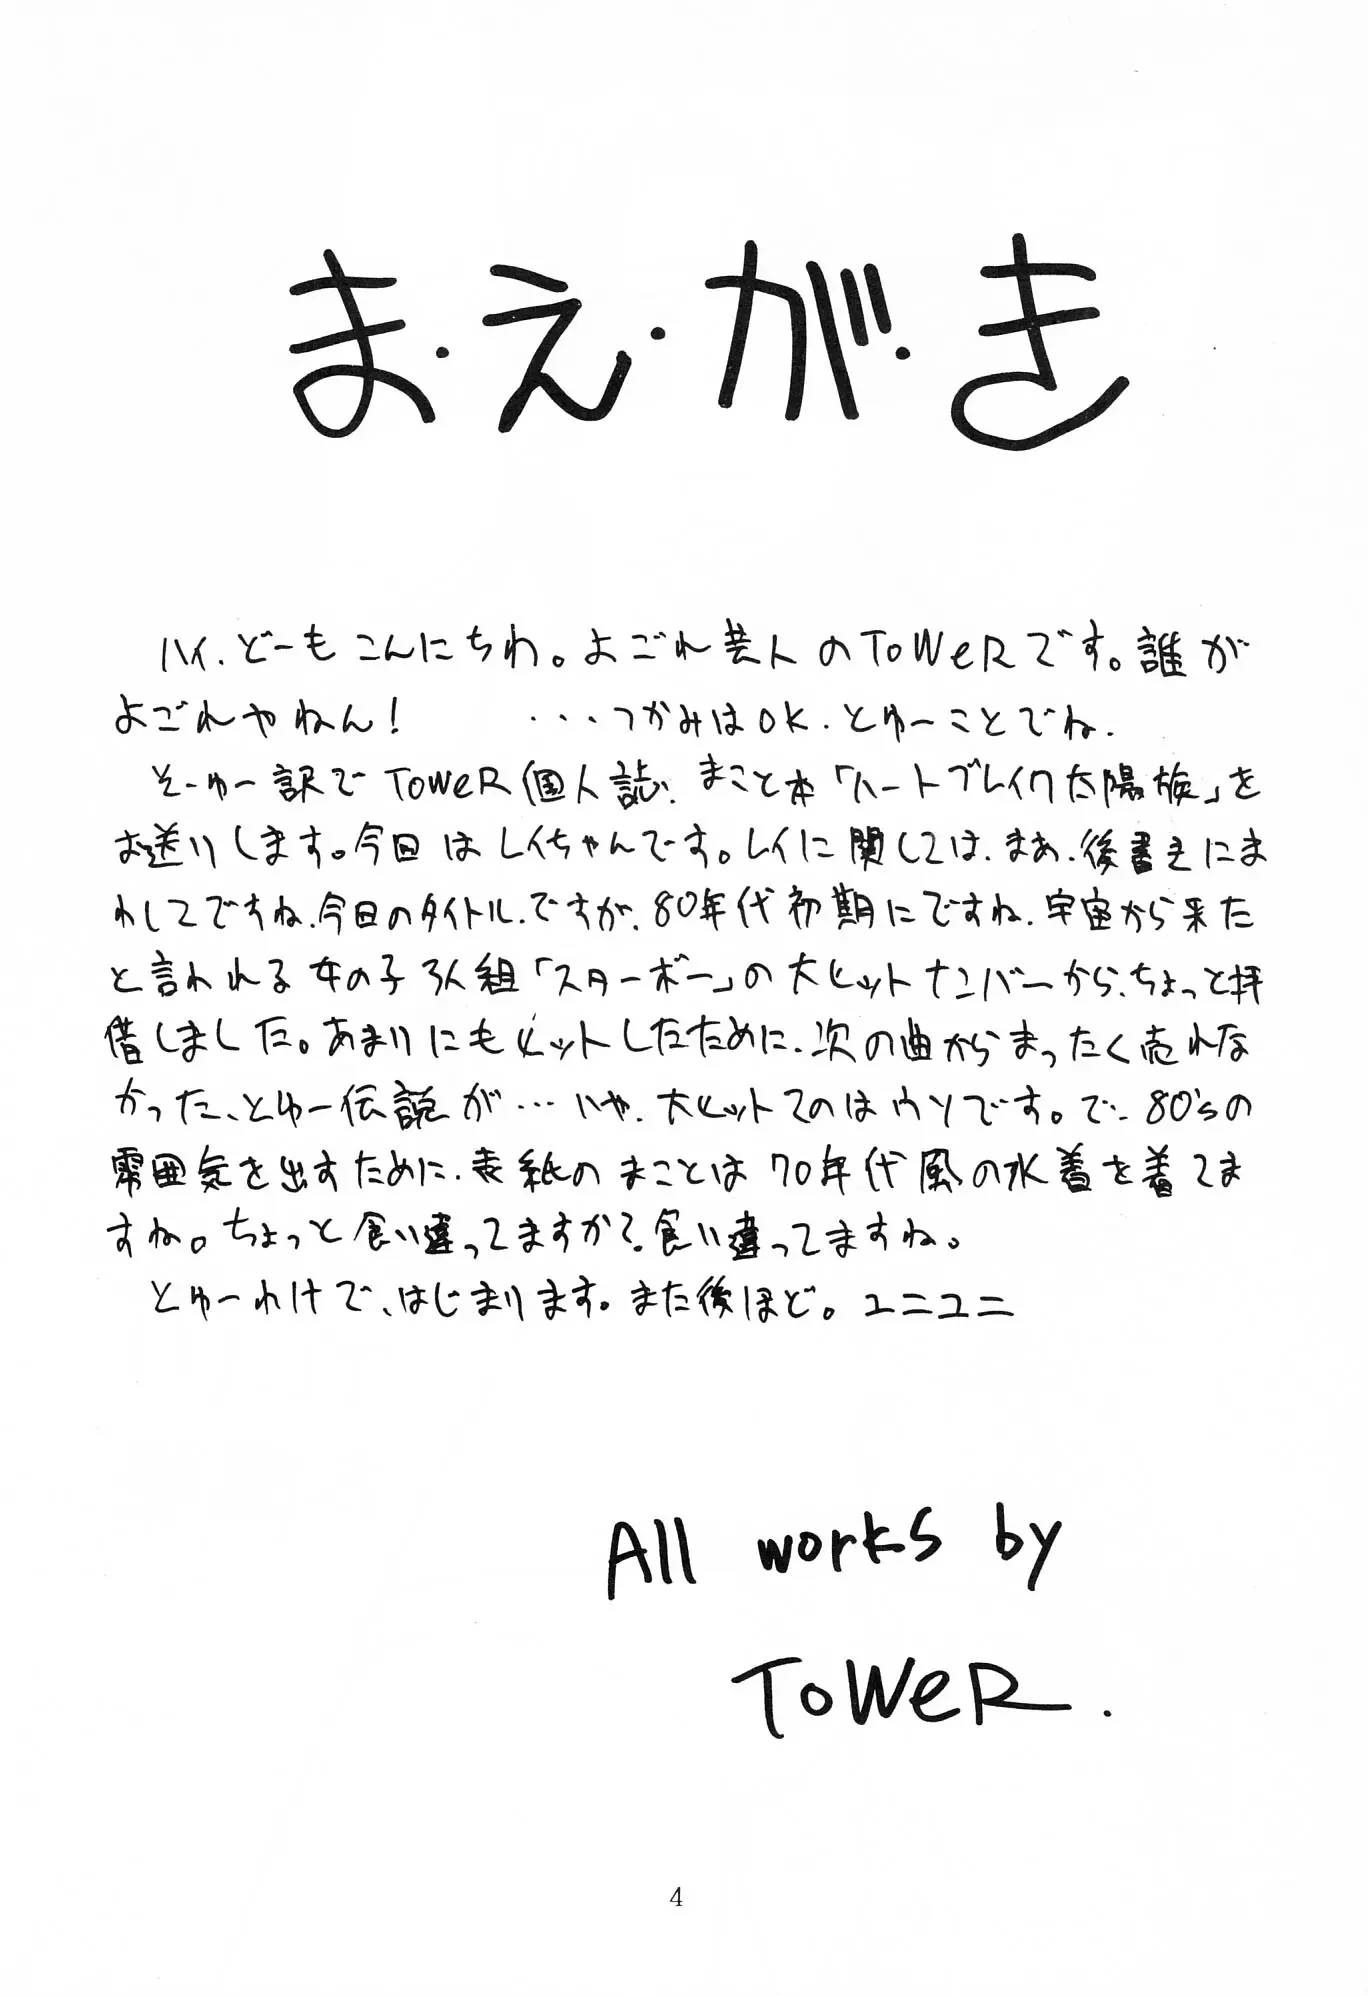 ま・え・が・き
ハイ、どーもこんにちわ。よごれ芸人のToWeRです。誰が
よごれやねん! ・・・つかみはOK.とゆーことでね.
そーゆー訳でToWeR個人誌、まこと本「ハートブレイク太陽族」を
お送りします。今回はレイちゃんです。レイに関しては、まあ、後書きにま
わしてですね、今日のタイトル、ですが、80年代初期にですね、宇宙から来た
と言われる女の子3人組「スターボー」の大ヒットナンバーから、ちょっと拝
借しました。あまりにもヒットしたために、次の曲からまったく売れな
かった、とゆー伝説が・・・いや、大ヒットてのはウソです。で、80'sの
雰囲気を出すために、表紙のまことは70年代風の水着を着てま
すね。ちょっと食い違ってますか?食い違ってますね。
とゆーわけで、はじまります。また後ほど。ユニユニ
All works by
ToWeR.
4